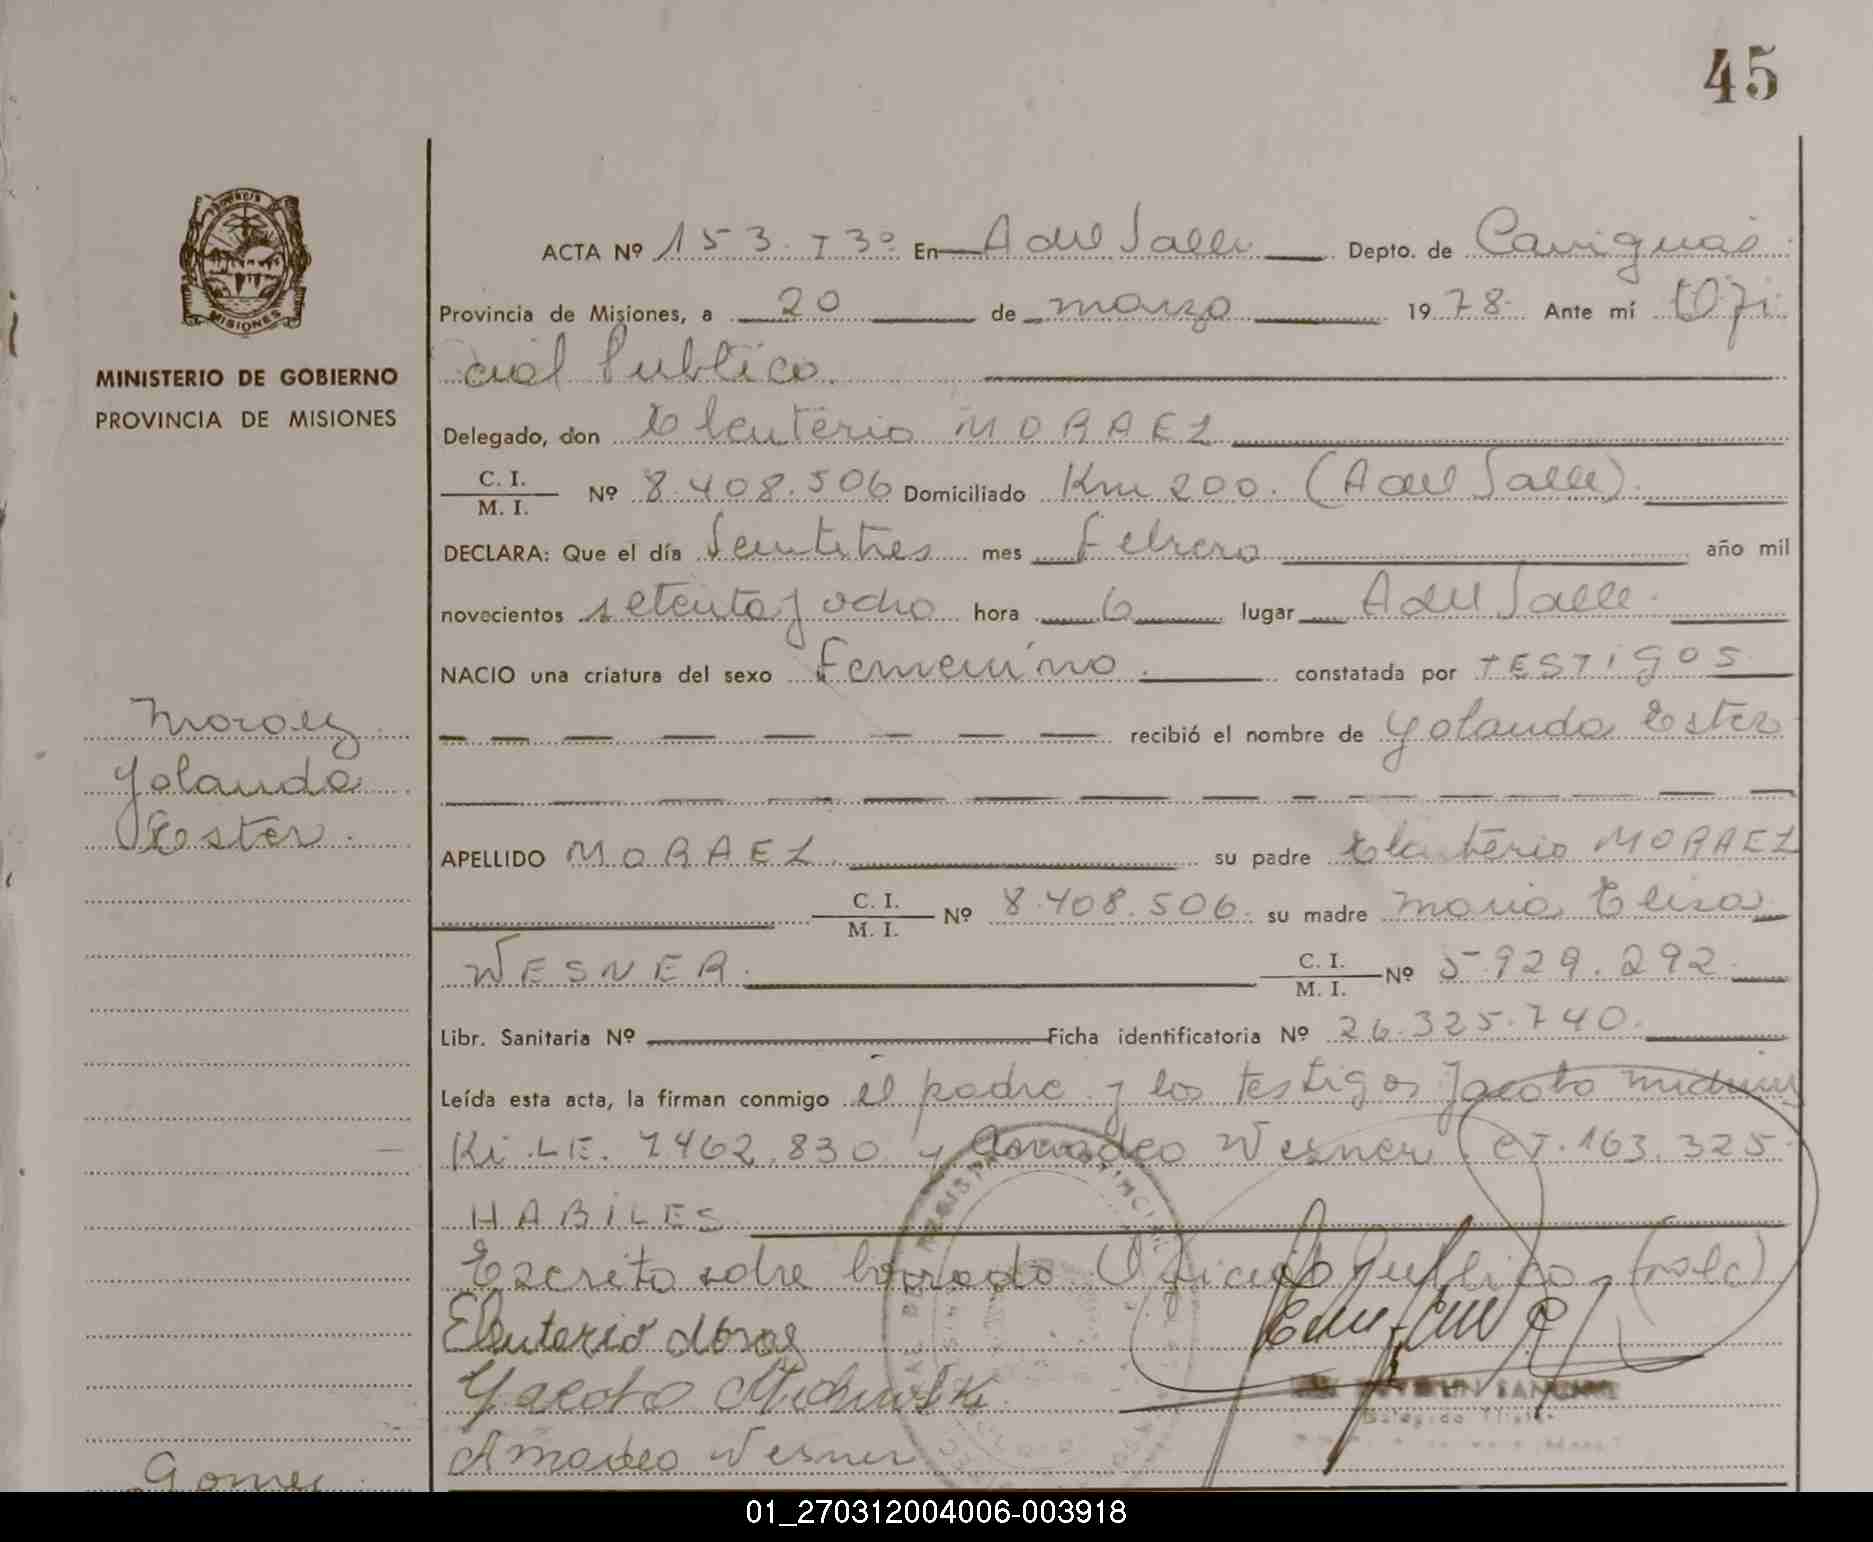 45
MISIONES
MINISTERIO DE GOBIERNO
PROVINCIA DE MISIONES
ACTA Nº 153. T 3º En A del Valle Depto. de Cainguás
Provincia de Misiones, a 20 de marzo 1978. Ante mí Ofi
cial Publico.
Delegado, don Eleuterio MORAEZ
C. I.
M. I. Nº 8.408.506 Domiciliado Km 200. (A del Valle).
DECLARA: Que el día Veintitres mes Febrero año mil
novecientos setenta y ocho hora 6 lugar A del Valle.
NACIO una criatura del sexo Femenino. constatada por TESTIGOS
recibió el nombre de Yolanda Ester
Moraez
Yolanda
Ester.
APELLIDO MORAEZ su padre Eleuterio MORAEZ
C. I.
M. I. Nº 8.408.506. su madre Maria Elisa
WESNER. C. I.
M. I. Nº 5.929.292
Libr. Sanitaria Nº Ficha identificatoria Nº 26.325.740.
Leída esta acta, la firman conmigo el padre y los testigos Jacobo
Ki LE. 7462.830 y Amadeo Wesner CI. 163.325
HABILES
Escrito sobre borrado Oficial Publico. (vale)
Eleuterio Moraez
Amadeo Wesner
Gomez
01_270312004006-003918